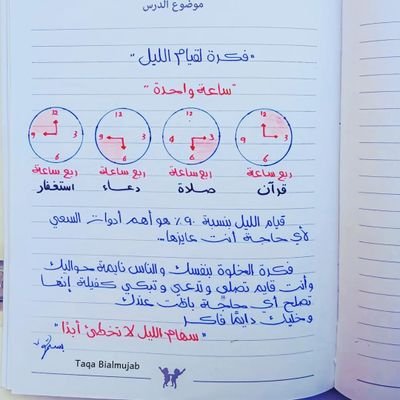 موضوع الدرس
"فكرة لقيام الليل"
"ساعة واحدة"
12 3 6 9
12 3 6 9
12 3 6 9
12 3 6 9
ربع ساعة ربع ساعة ربع ساعة ربع ساعة
قرآن صلاة دعاء استغفار
قيام الليل بنسبة ٩٠٪ هو أهم أدوات السعي
لأي حاجة أنت عايزها...
فكرة الخلوة بنفسك والناس نايمة حواليك
وأنت قايم تصلي وتدعي وتبكي كفيلة إنها
تصلح أي حاجة باظت عندك
وخليك دايمًا فاكر
"سهام الليل لا تخطئ أبدًا"
Taqa Bialmujab